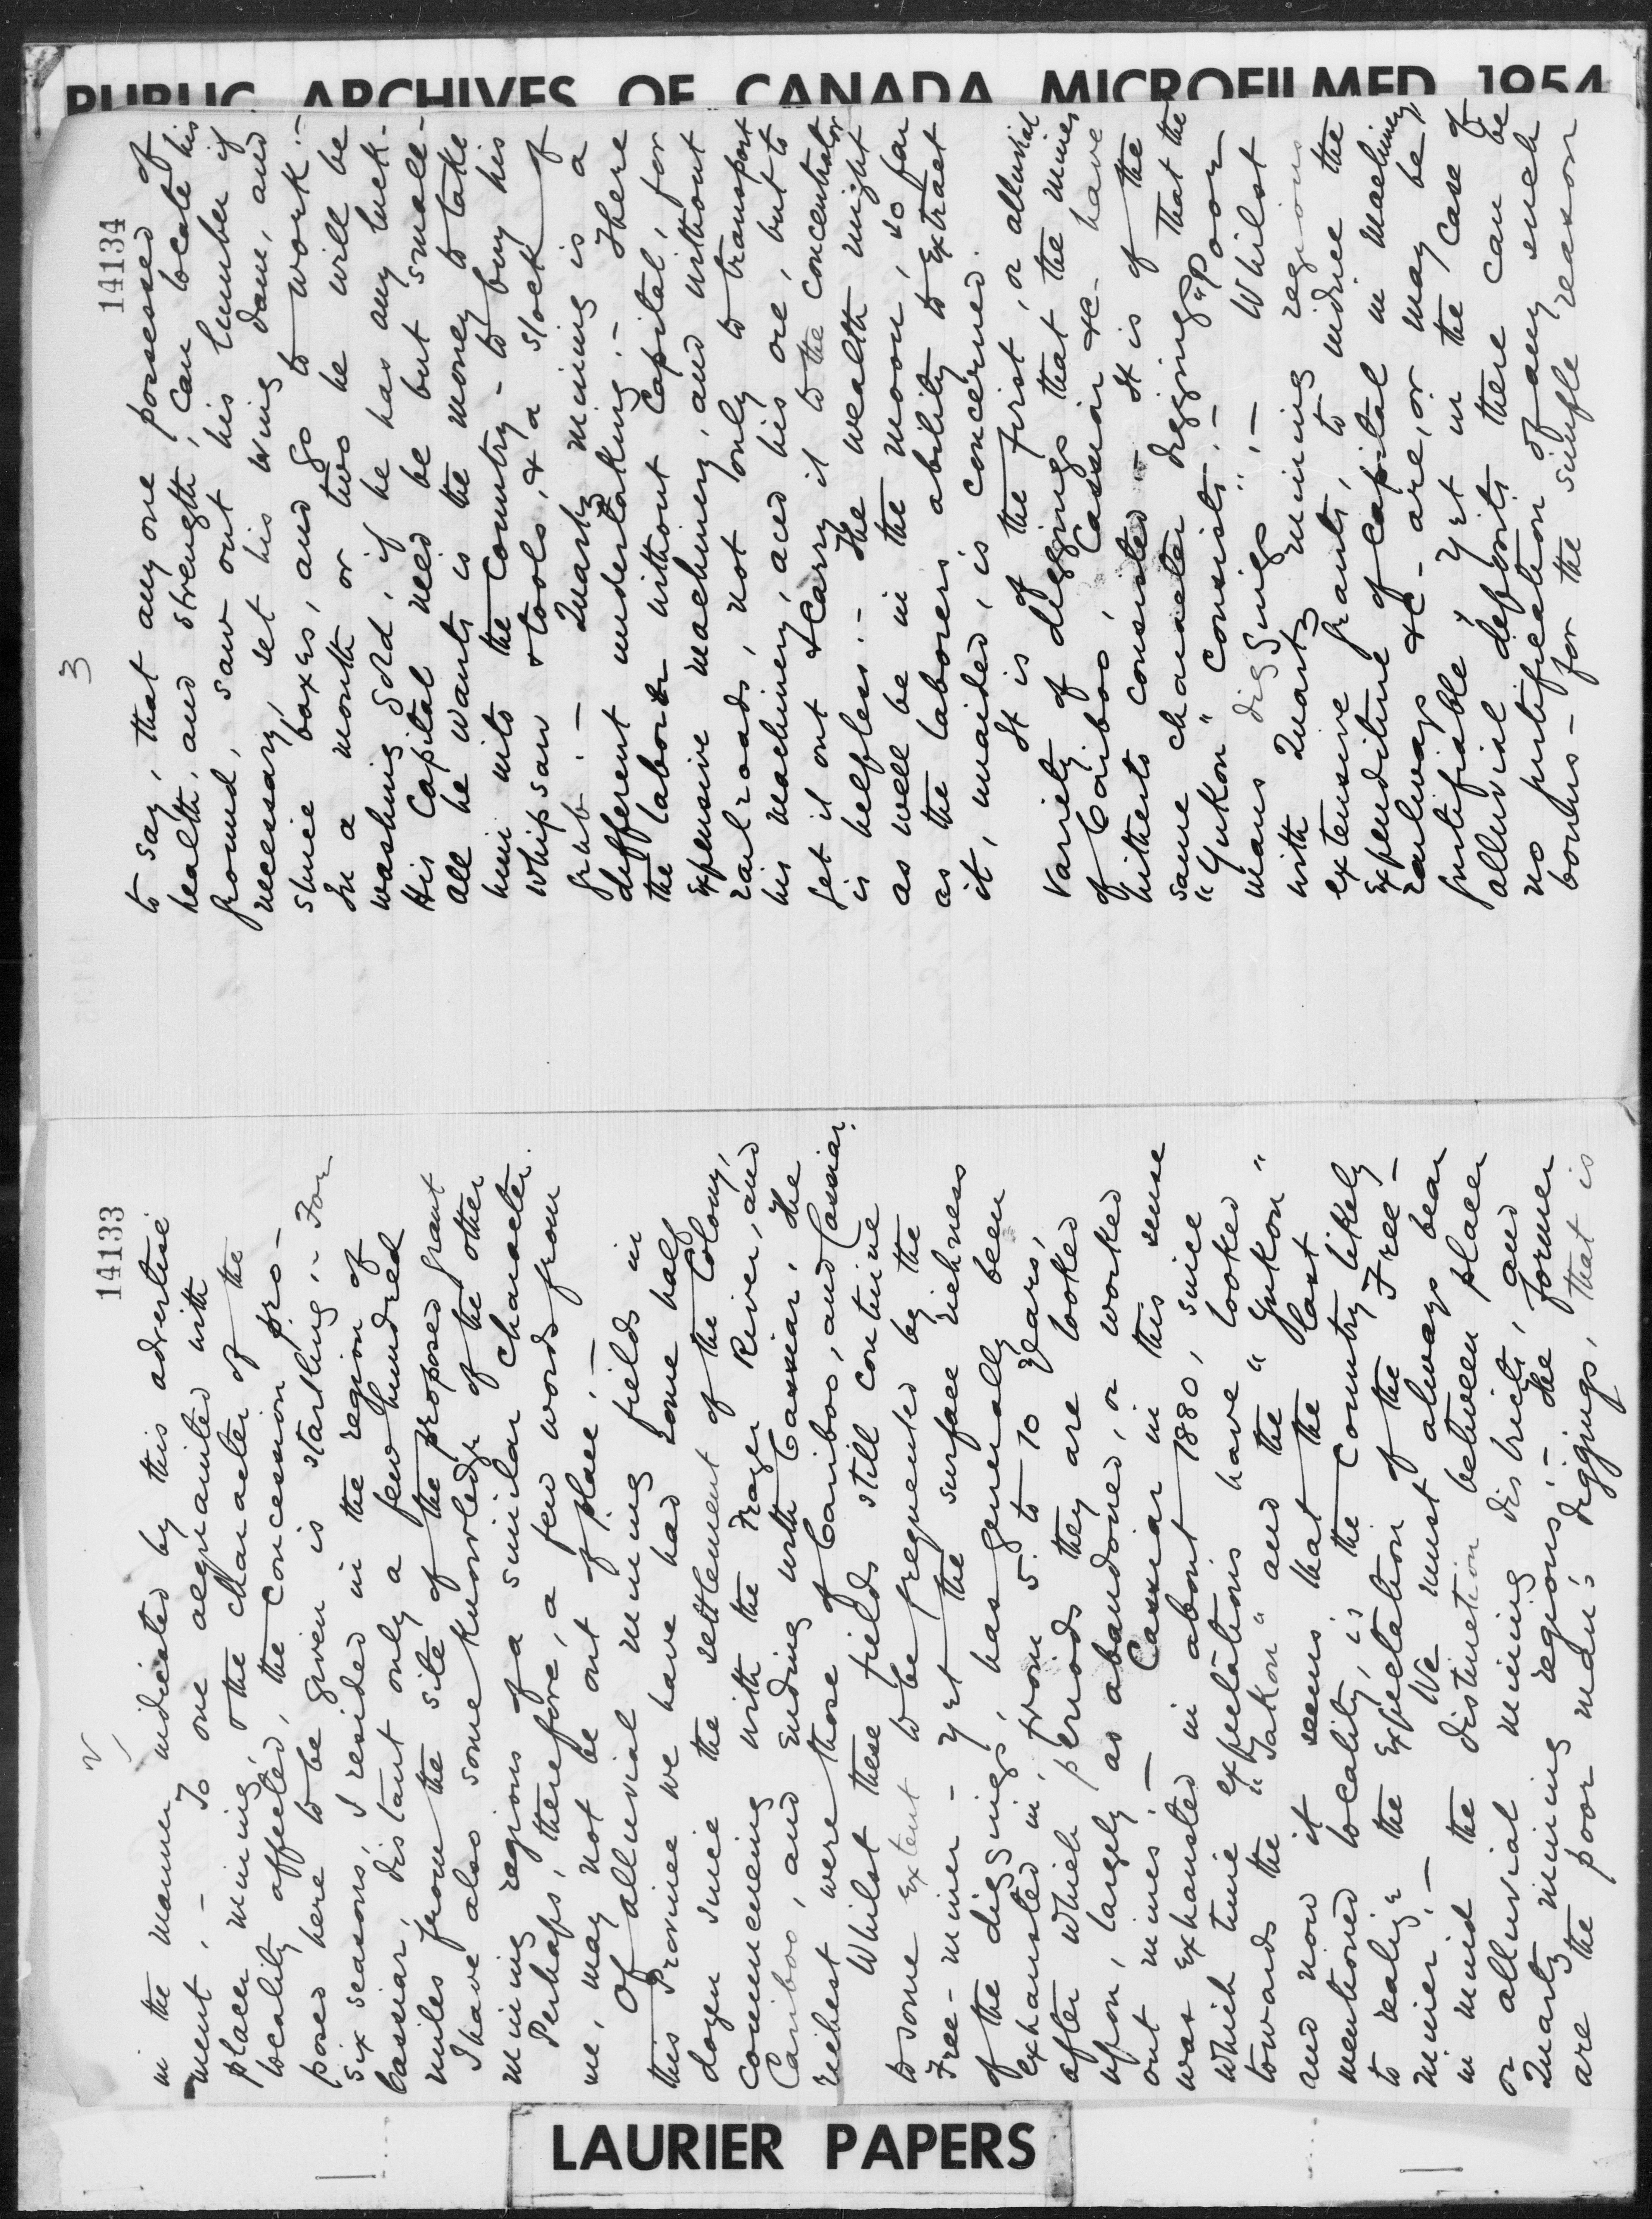 PUBLIC ARCHIVES OF CANADA MICROFILMED 1954
14133
2
in the manner indicated by this advertise
ment. - To one acquainted with
placer mining, & the character of the
locality affected, the concession pro-
posed here to be given is startling. - For
six seasons, I resided in the region of
Cassiar, distant only a few hundred
miles from the site of the proposed grant
I have also some knowledge of the other
mining regions of a similar character.
Perhaps, therefore, a few words from
me, may not be out of place. -
Of alluvial mining fields in
this Province we have had some half
dozen since the settlement of the Colony,
commencing with the Frazer River, and
Cariboo, and ending with Cassiar. The
richest were those of Cariboo, and Cassiar.
Whilst these fields still continue
to some extent to be frequented by the
Free-miner - yet the surface richness
of the diggings, has generally been
exhausted in, from 5 to 10 years,
after which periods they are looked
upon, largely as abandoned, or worked
out mines. - Cassiar in this sense
was exhausted in about 1880, since
which time expectations have looked
towards the "Takon" and the "Yukon"
and now it seems that the last
mentioned locality, is the country likely
to realize the expectation of the Free-
miner. - We must always bear
in mind the distinction between placer
or alluvial mining districts, and
Quartz mining regions. - The former
are the poor man's diggings, that is
14134
3
to say, that any one possessed of
health, and strength, can locate his
ground, saw out his lumber if
necessary, set his wing dam, and
sluice boxes, and go to work. -
In a month or two he will be
washing gold, if he has any luck. -
His Capital need be but small -
all he wants is the money to take
him into the Country - to buy his
whipsaw & tools, & a stock of
grub. - Quartz mining is a
different undertaking. - There
the laborer without Capital, for
expensive machinery, and without
railroads, not only to transport
his machinery, and his ore, but to
get it out & carry it to the concentrator
is helpless. - The wealth might
as well be in the moon, so far
as the laborers ability to extract
it, unaided, is concerned.
It is of the first, or alluvial
variety of diggings that the mines
of Cariboo, Cassiar &c. have
hitherto consisted - It is of the
same character of diggings that the
"Yukon" consists. - "Poor
mans diggings". - Whilst
with Quartz mining regions
extensive grants, to induce the
expenditure of Capital in machinery
railways &c - are, or may be,
justifiable, yet in the case of
alluvial deposits there can be
no justification of any such
bonus - for the simple reason
LAURIER PAPERS